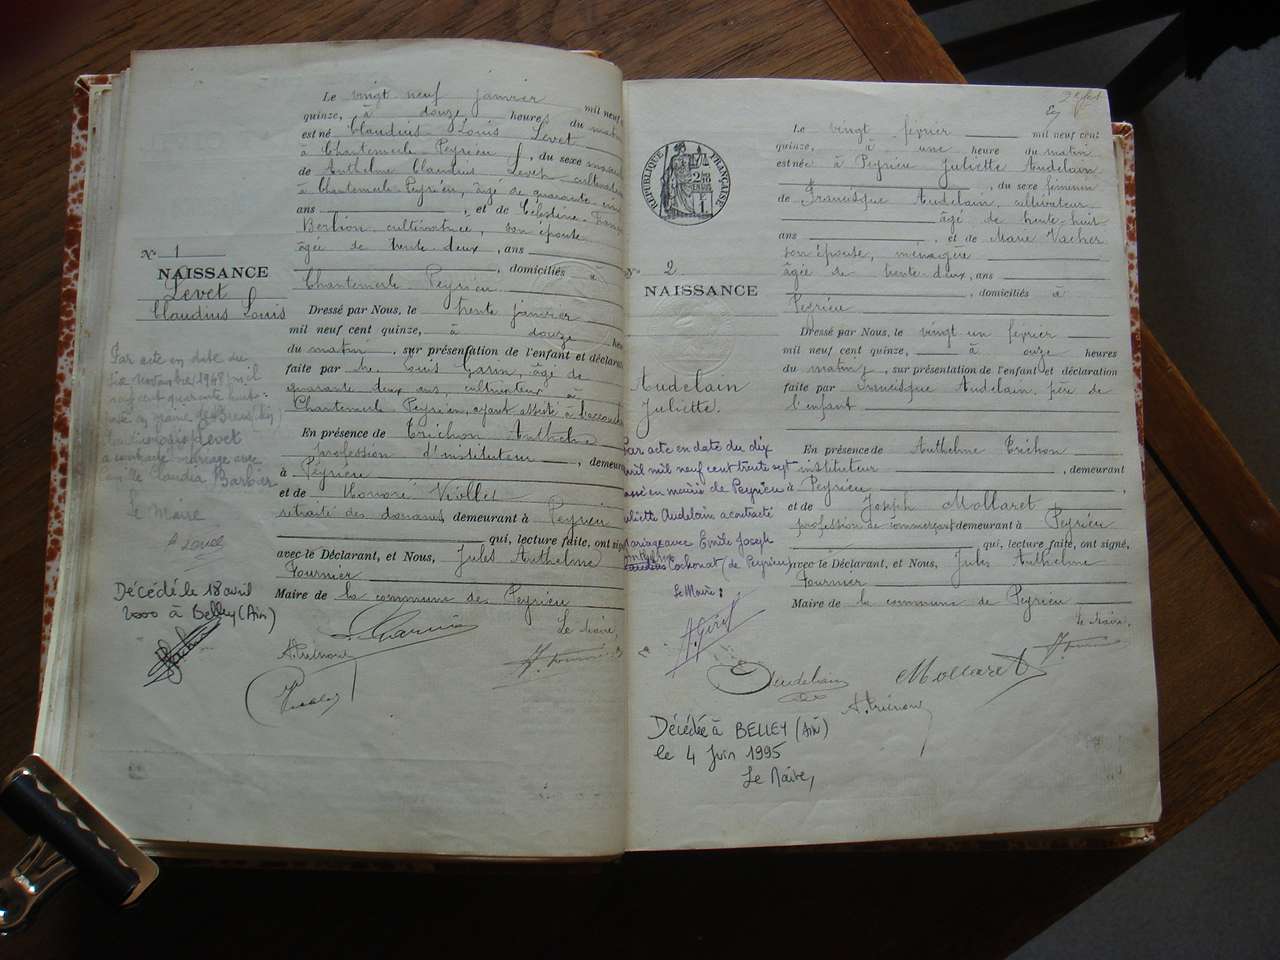 Le vingt neuf janvier mil neuf
quinze, à douze heures du matin
est né Claudius Louis Levet
à Chantemerle Peyrieu, du sexe
de Anthelme Claudius Levet cultivateur
à Chantemerle Peyrieu, âgé de quarante
ans, et de Célestine
cultivatrice, son épouse
âgée de trente deux, ans
, domiciliés
Chantemerle Peyrieu
N° 1
NAISSANCE
Levet
Claudius Louis
Dressé par Nous, le trente janvier
mil neuf cent quinze, à douze
du matin, sur présentation de l'enfant et déclara
faite par Louis âgé de
quarante deux ans, cultivateur à
Chantemerle Peyrieu, ayant assisté à
En présence de Trichon Anthelme
profession d'instituteur, demeu
à Peyrieu
et de Honoré Viollet
retraité des douanes, demeurant à Peyrieu
qui, lecture faite, ont sig
avec le Déclarant, et Nous, Jules Anthelme
Fournier
Maire de la commune de Peyrieu
Le Maire,
Par acte en date du
six novembre 1948 mil
neuf cent quarante huit
Levet
a contracté mariage avec
Claudia Barbier
Le Maire
Décédé le 18 avril
2000 à Belley (Ain)
Le vingt février mil neuf cent
quinze, à une heure du matin
est née à Peyrieu Juliette Audelain
, du sexe féminin
de Francisque Audelain, cultivateur
âgé de trente huit
ans, et de Marie Vacher
son épouse, ménagère
âgée de trente deux, ans
, domiciliés à
Peyrieu
RÉPUBLIQUE FRANÇAISE
N° 2
NAISSANCE
Audelain
Juliette.
Dressé par Nous, le vingt un février
mil neuf cent quinze, à onze heures
du matin, sur présentation de l'enfant et déclaration
faite par Francisque Audelain, père de
l'enfant
En présence de Anthelme Trichon
instituteur, demeurant
à Peyrieu
et de Joseph Mollaret
profession de commerçant demeurant à Peyrieu
qui, lecture faite, ont signé,
avec le Déclarant, et Nous, Jules Anthelme
Fournier
Maire de la commune de Peyrieu
Le Maire,
Par acte en date du dix
avril mil neuf cent trente sept
passé en mairie de Peyrieu
Juliette Audelain a contracté
mariage avec Emile Joseph
Cochonat (de Peyrieu)
Le Maire:
Audelain
Mollaret
Décédée à BELLEY (Ain)
le 4 Juin 1995
Le Maire,